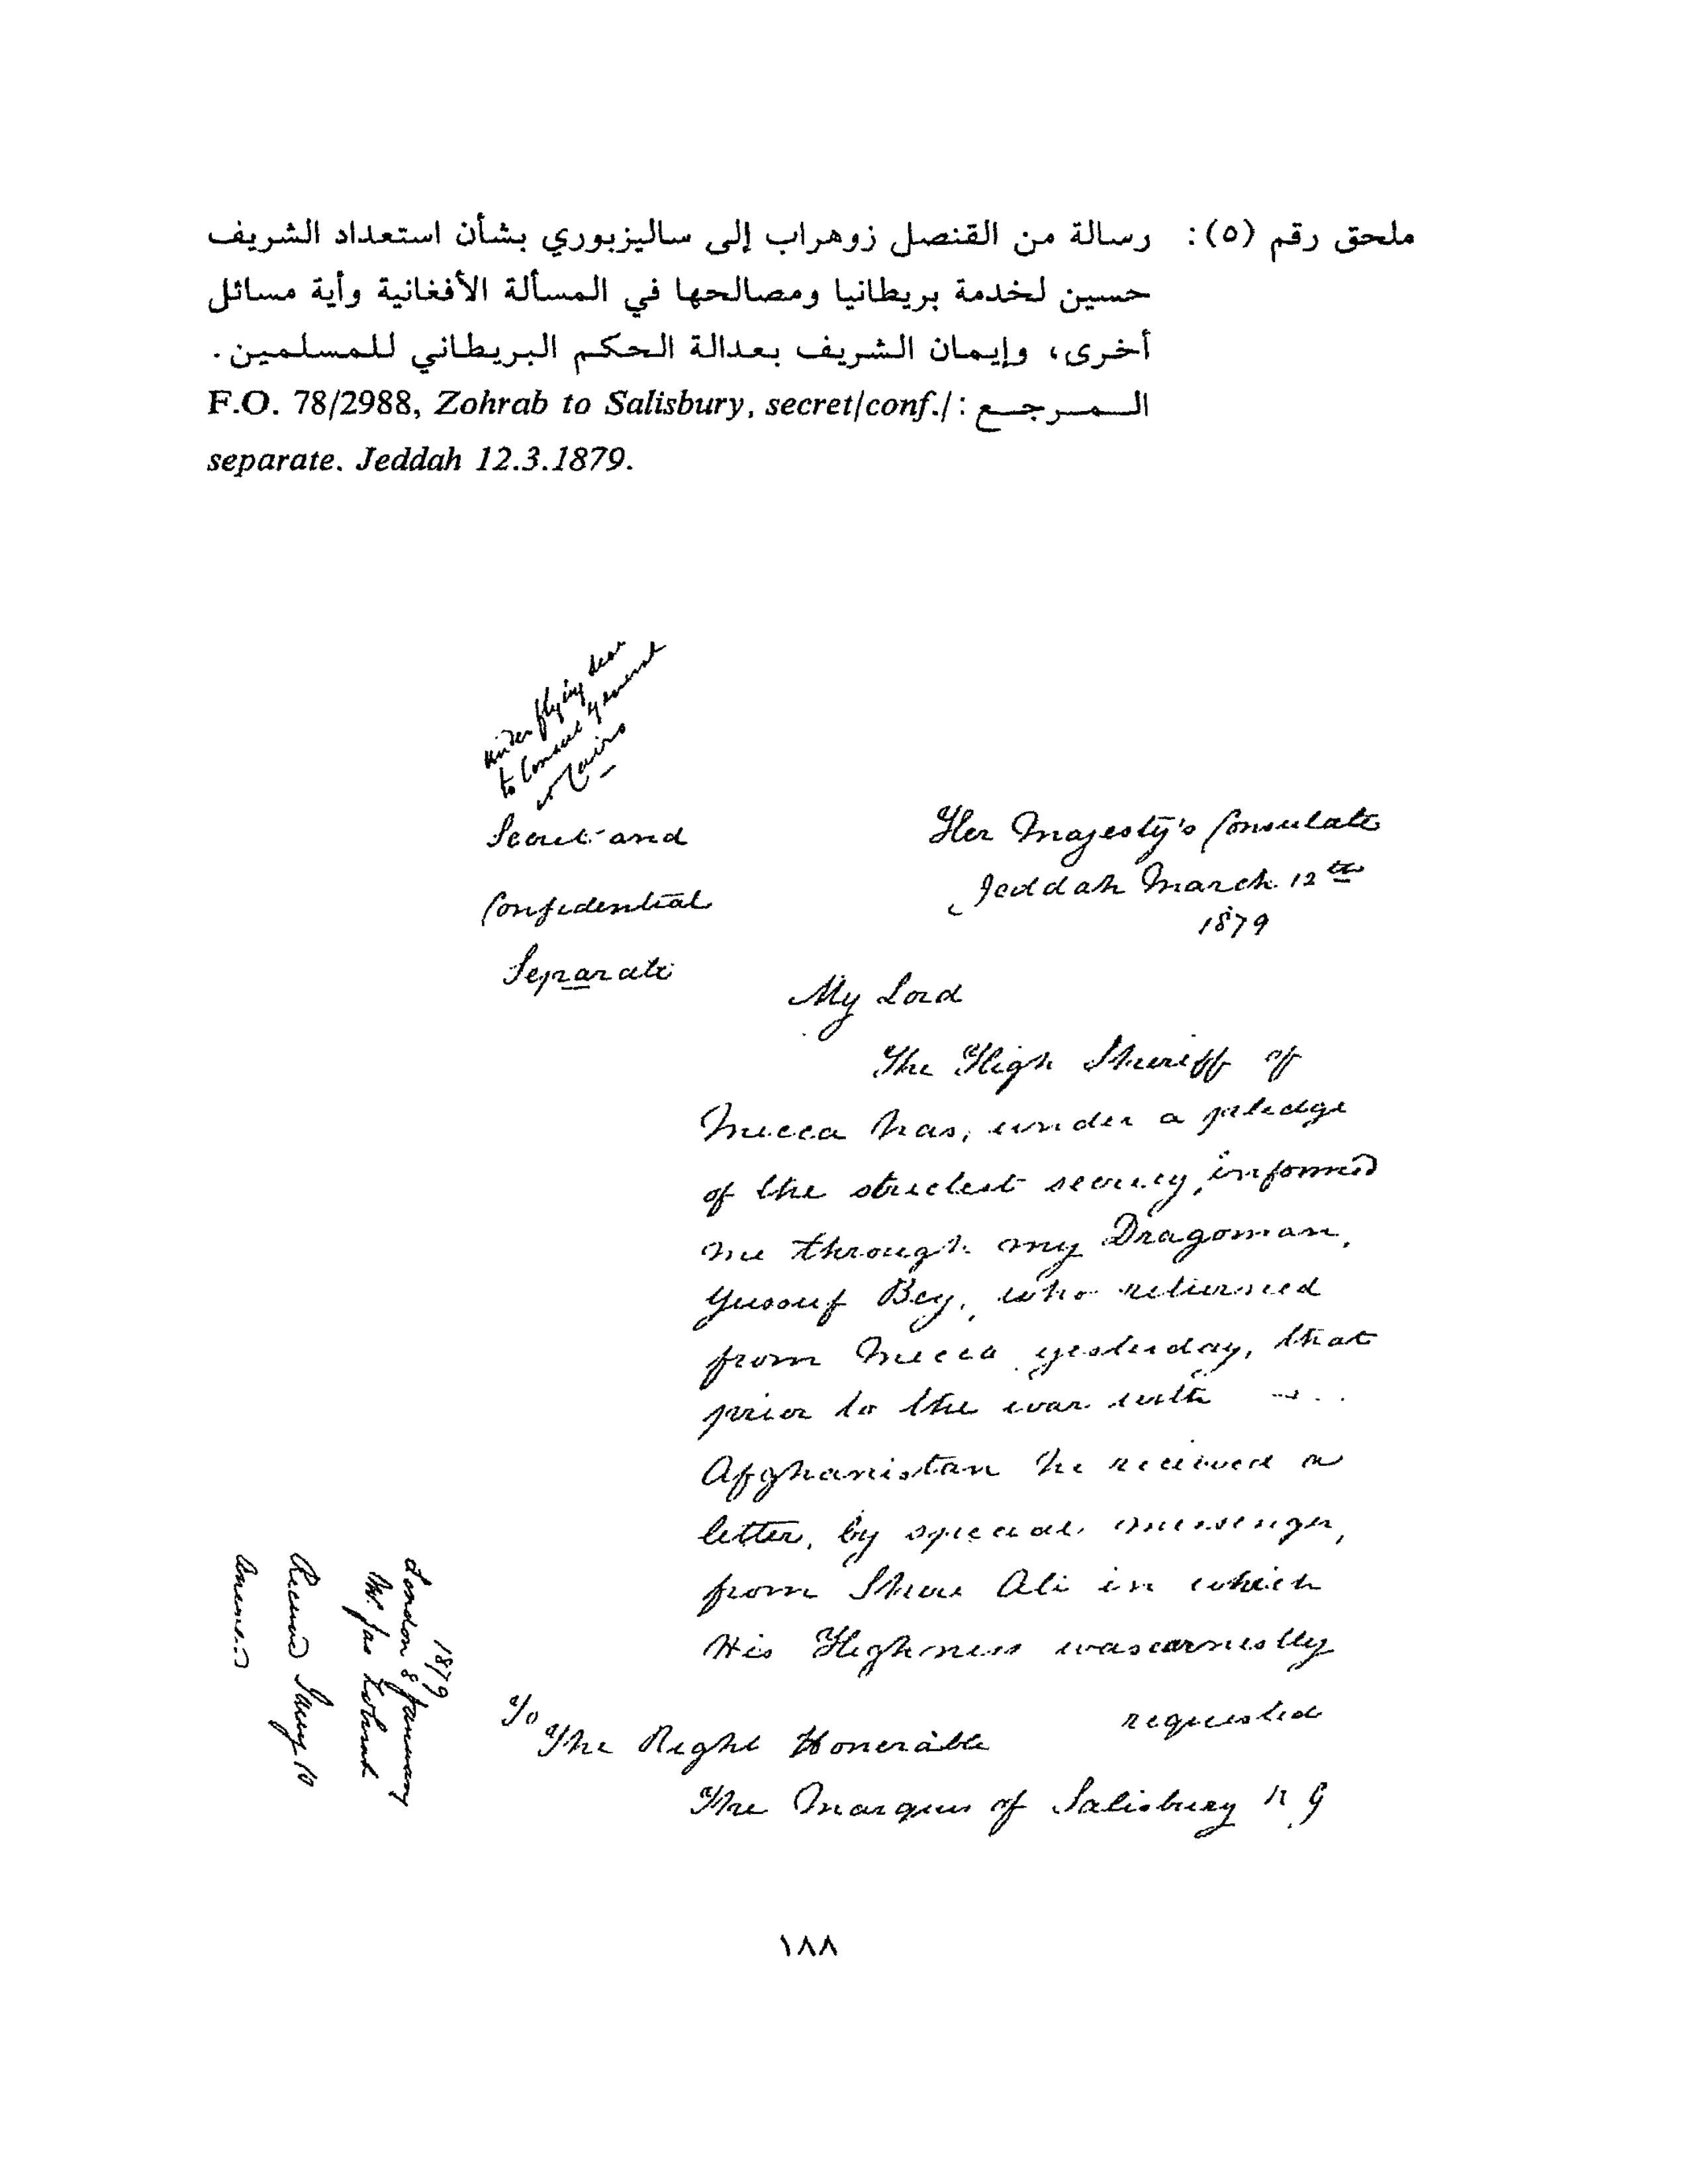 ملحق رقم (٥): رسالة من القنصل زوهراب إلى ساليزبوري بشأن استعداد الشريف
حسين لخدمة بريطانيا ومصالحها في المسألة الأفغانية وأية مسائل
أخرى، وإيمان الشريف بعدالة الحكم البريطاني للمسلمين.
المرجع: F.O. 78/2988, Zohrab to Salisbury, secret/conf./
separate. Jeddah 12.3.1879.
under flying seal
to Consul General
Cairo
Secret and
Confidential
Separate
Her Majesty's Consulate
Jeddah March 12th
1879
My Lord
The High Sheriff of
Mecca has, under a pledge
of the strictest secrecy, informed
me through my Dragoman,
Yussuf Bey, who returned
from Mecca yesterday, that
prior to the war with
Afghanistan he received a
letter, by special messenger,
from Shere Ali in which
His Highness was earnestly
requested
To
The Right Honorable
The Marquis of Salisbury K G
1879
London 8 January
Mr. Jas Zohrab
Received Jany 10
١٨٨